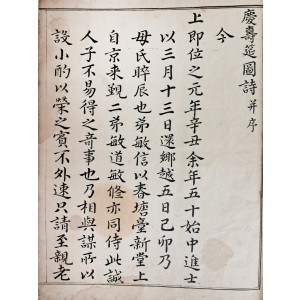 慶壽筵圖詩 幷序
今
上即位之元年辛丑余年五十始中進士
以三月十三日還鄉越五日己卯乃
母氏晬辰也弟敏信以春塘臺新堂上
自京來覲二弟敏道敏修亦同侍此誠
人子不易得之喜事也乃相與謀所以
設小酌以榮之賓不外速只請至親老